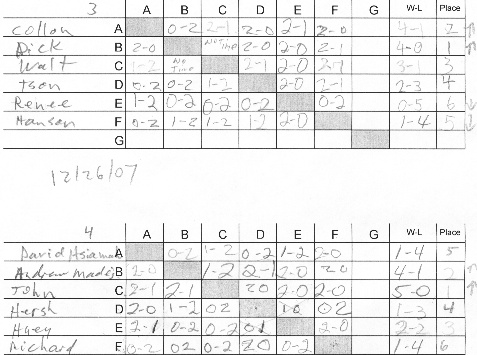 3 A B C D E F G W-L Place
Collon A 0-2 2-1 2-0 2-1 2-0 4-1 2 ↑
Dick B 2-0 No Time 2-0 2-0 2-1 4-0 1 ↑
Walt C 1-2 No Time 2-1 2-0 2-1 3-1 3
Tson D 0-2 0-2 1-2 2-0 2-1 2-3 4
Renee E 1-2 0-2 0-2 0-2 0-2 0-5 6 ↓
Hanson F 0-2 1-2 1-2 1-2 2-0 1-4 5 ↓
G
12/26/07
4 A B C D E F G W-L Place
David A 0-2 1-2 0-2 1-2 2-0 1-4 5
Andrew B 2-0 1-2 2-1 2-0 2-0 4-1 2 ↑
John C 2-1 2-1 20 2-0 2-0 5-0 1 ↑
Hersh D 2-0 1-2 02 02 1-3 4
Huey E 2-1 0-2 0-2 01 2-0 2-2 3
Richard F 0-2 02 0-2 20 0-2 1-4 6